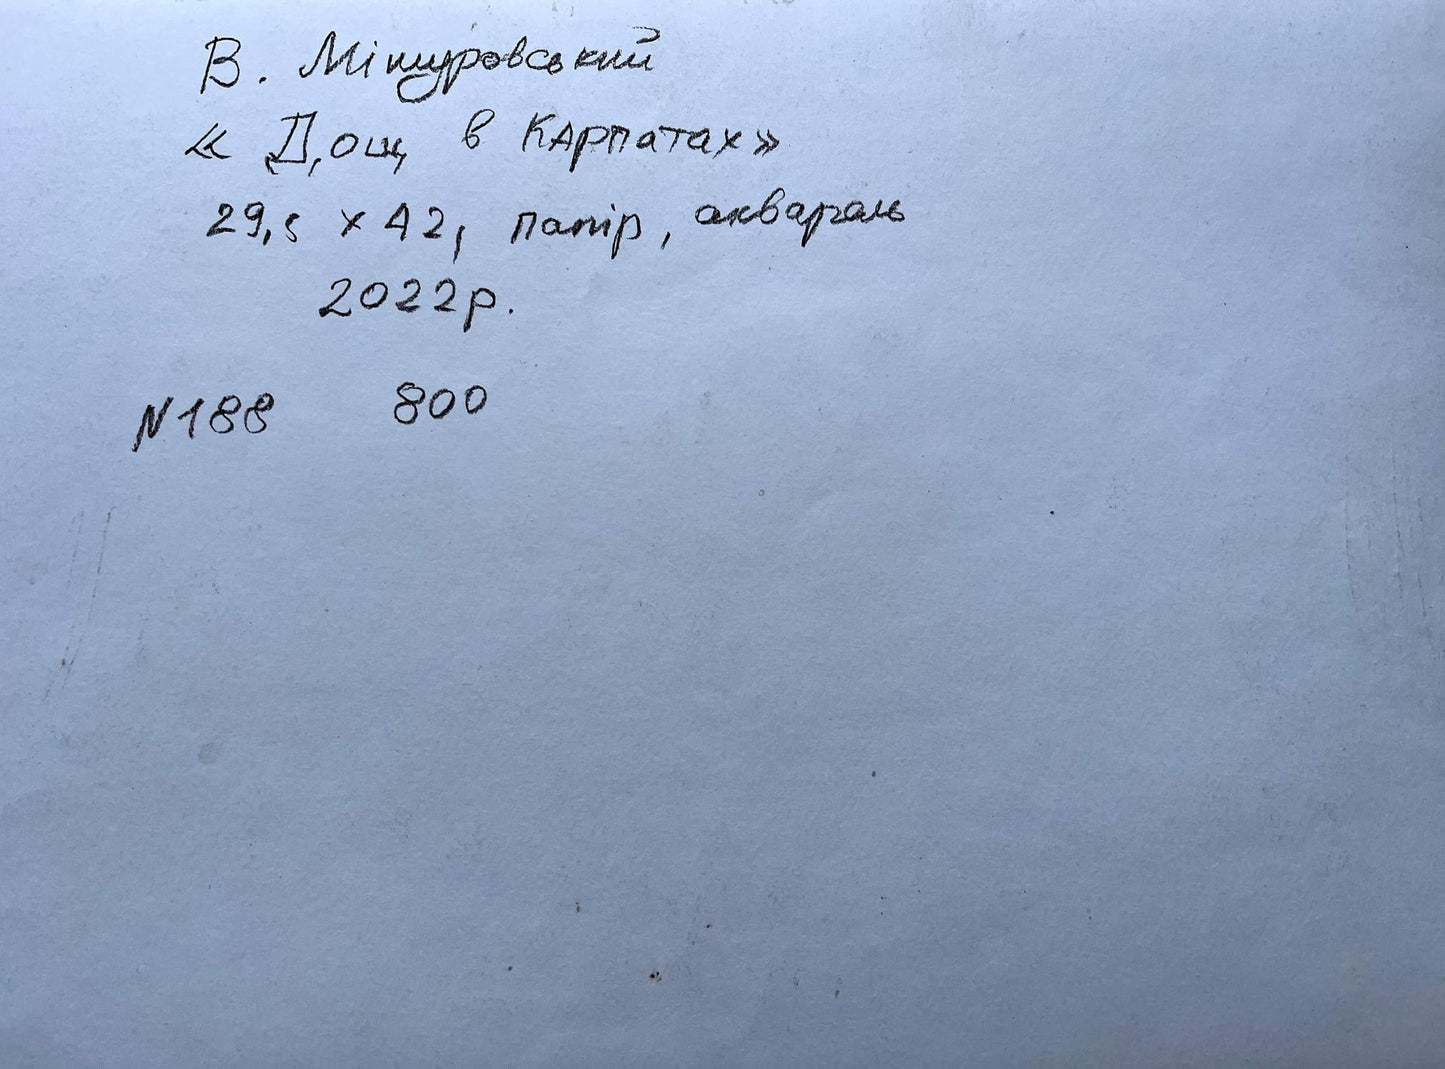 В. Мішуровський
«Дощ в Карпатах»
29,5 х 42, папір, акварель
2022р.
N188 800